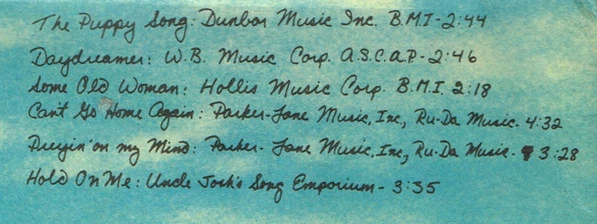 The Puppy Song: Dunbar Music Inc. B.M.I - 2:44
Daydreamer: W.B. Music Corp. A.S.C.A.P - 2:46
Some Old Woman: Hollis Music Corp. B.M.I. 2:18
Cant Go Home Again: Parker-Lane Music, Inc, Ru-Da Music - 4:32
Preyin' on my Mind: Parker-Lane Music, Inc, Ru-Da Music - 3:28
Hold On Me: Uncle Josh's Song Emporium - 3:35